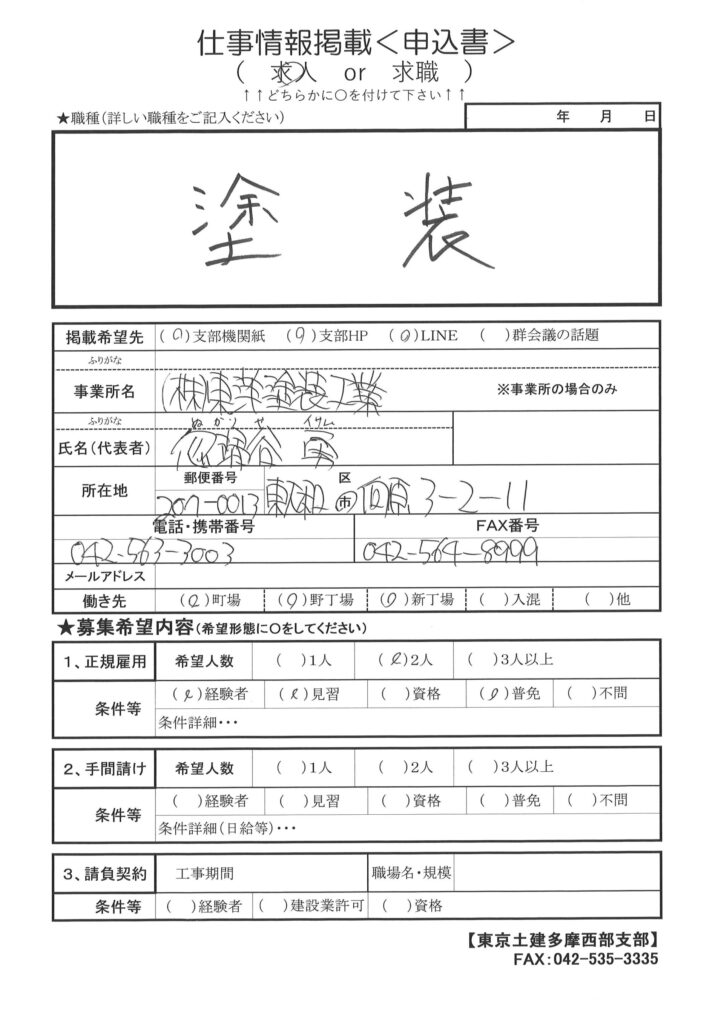 仕事情報掲載<申込書>
( 求人 or 求職 )
↑↑どちらかに○を付けて下さい↑↑
★職種(詳しい職種をご記入ください)
年 月 日
塗 装
掲載希望先 (○)支部機関紙 (○)支部HP (○)LINE ( )群会議の話題
ふりがな
事業所名 (株)東洋塗装工業 ※事業所の場合のみ
ふりがな ぬかりや イサム
氏名(代表者) 忽滑谷 勇
所在地 郵便番号 区
207-0013 東大和 市 向原 3-2-11
電話・携帯番号 FAX番号
042-563-3003 042-564-8999
メールアドレス
働き先 (○)町場 (○)野丁場 (○)新丁場 ( )入混 ( )他
★募集希望内容(希望形態に○をしてください)
1、正規雇用 希望人数 ( )1人 (○)2人 ( )3人以上
条件等 (○)経験者 (○)見習 ( )資格 (○)普免 ( )不問
条件詳細・・・
2、手間請け 希望人数 ( )1人 ( )2人 ( )3人以上
条件等 ( )経験者 ( )見習 ( )資格 ( )普免 ( )不問
条件詳細(日給等)・・・
3、請負契約 工事期間 職場名・規模
条件等 ( )経験者 ( )建設業許可 ( )資格
【東京土建多摩西部支部】
FAX:042-535-3335